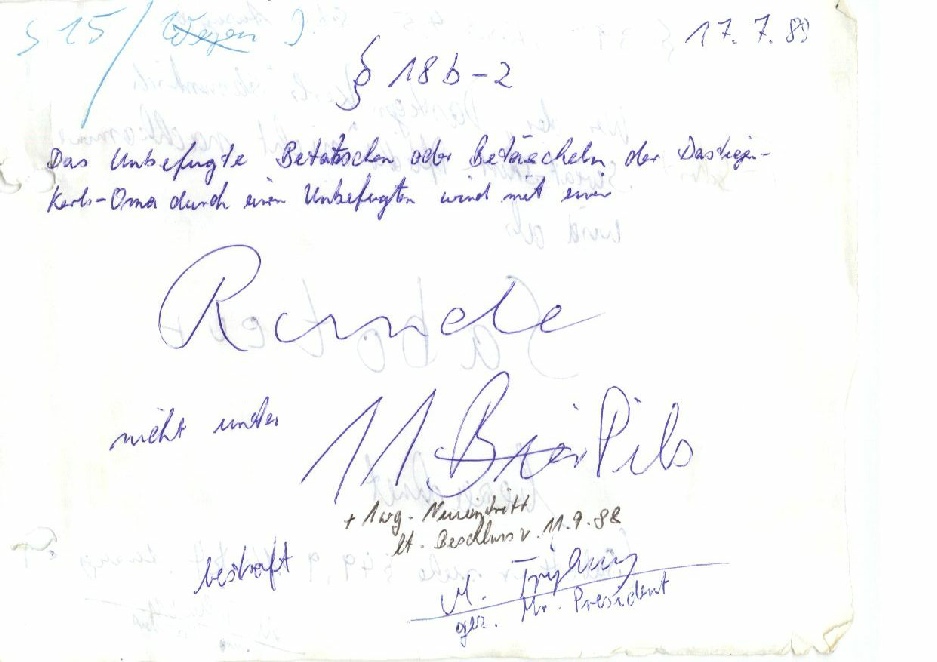 § 15 / Wegen J.
17. 7. 89
§ 18b-2
Das Unbefugte Betatschen oder Betäscheln der
Kerls-Oma durch einen Unbefugten wird mit einer
Runde
nicht unter 11 Bier Pils
+ 1 wg. Neueintritt
lt. Beschluss v. 11.9.88
bestraft
M.
gez. Mr. President